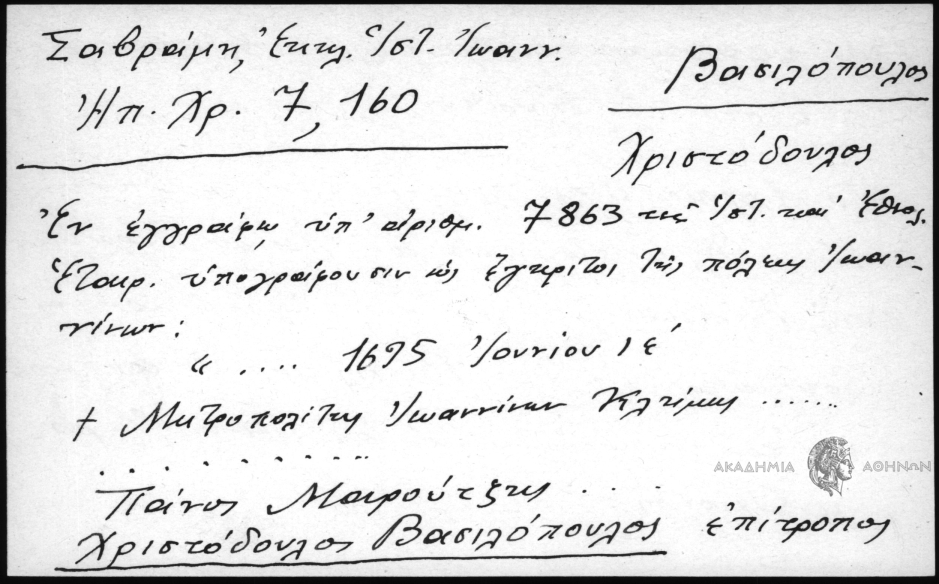 Σαβράμη, Ἐκκλ. Ἱστ. Ἰωανν.
Ἠπ. Χρ. 7, 160
Βασιλόπουλος
Χριστόδουλος
Ἐν ἐγγράφῳ ὑπ' ἀριθμ. 7863 τῆς Ἱστ. καὶ Ἐθνολ.
Ἑταιρ. ὑπογράφουσιν ὡς ἔγκριτοι τῆς πόλεως Ἰωαν-
νίνων:
« .... 1695 Ἰουνίου ιέ
† Μητροπολίτης Ἰωαννίνων Κλήμης ......
. . . . . . . . . .
Πάνος Μαρούτζης . . .
Χριστόδουλος Βασιλόπουλος ἐπίτροπος
ΑΚΑΔΗΜΙΑ ΑΘΗΝΩΝ